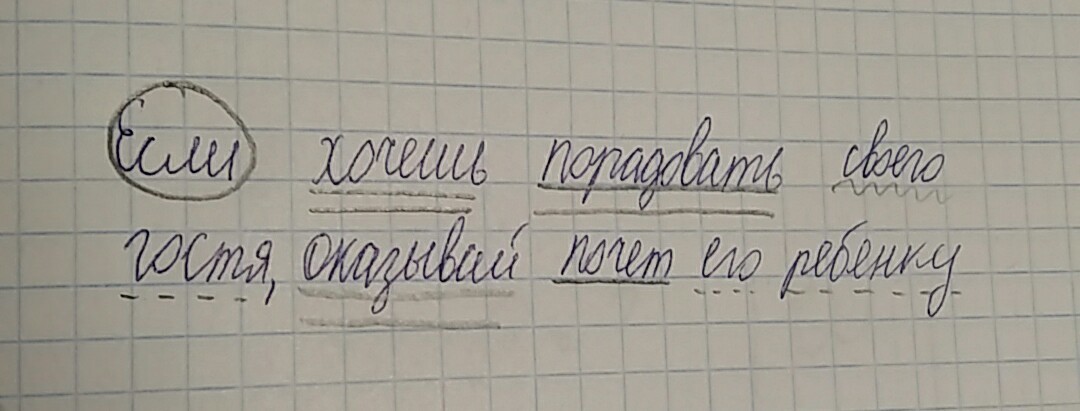 Если хочешь порадовать своего
гостя, оказывай почет его ребенку